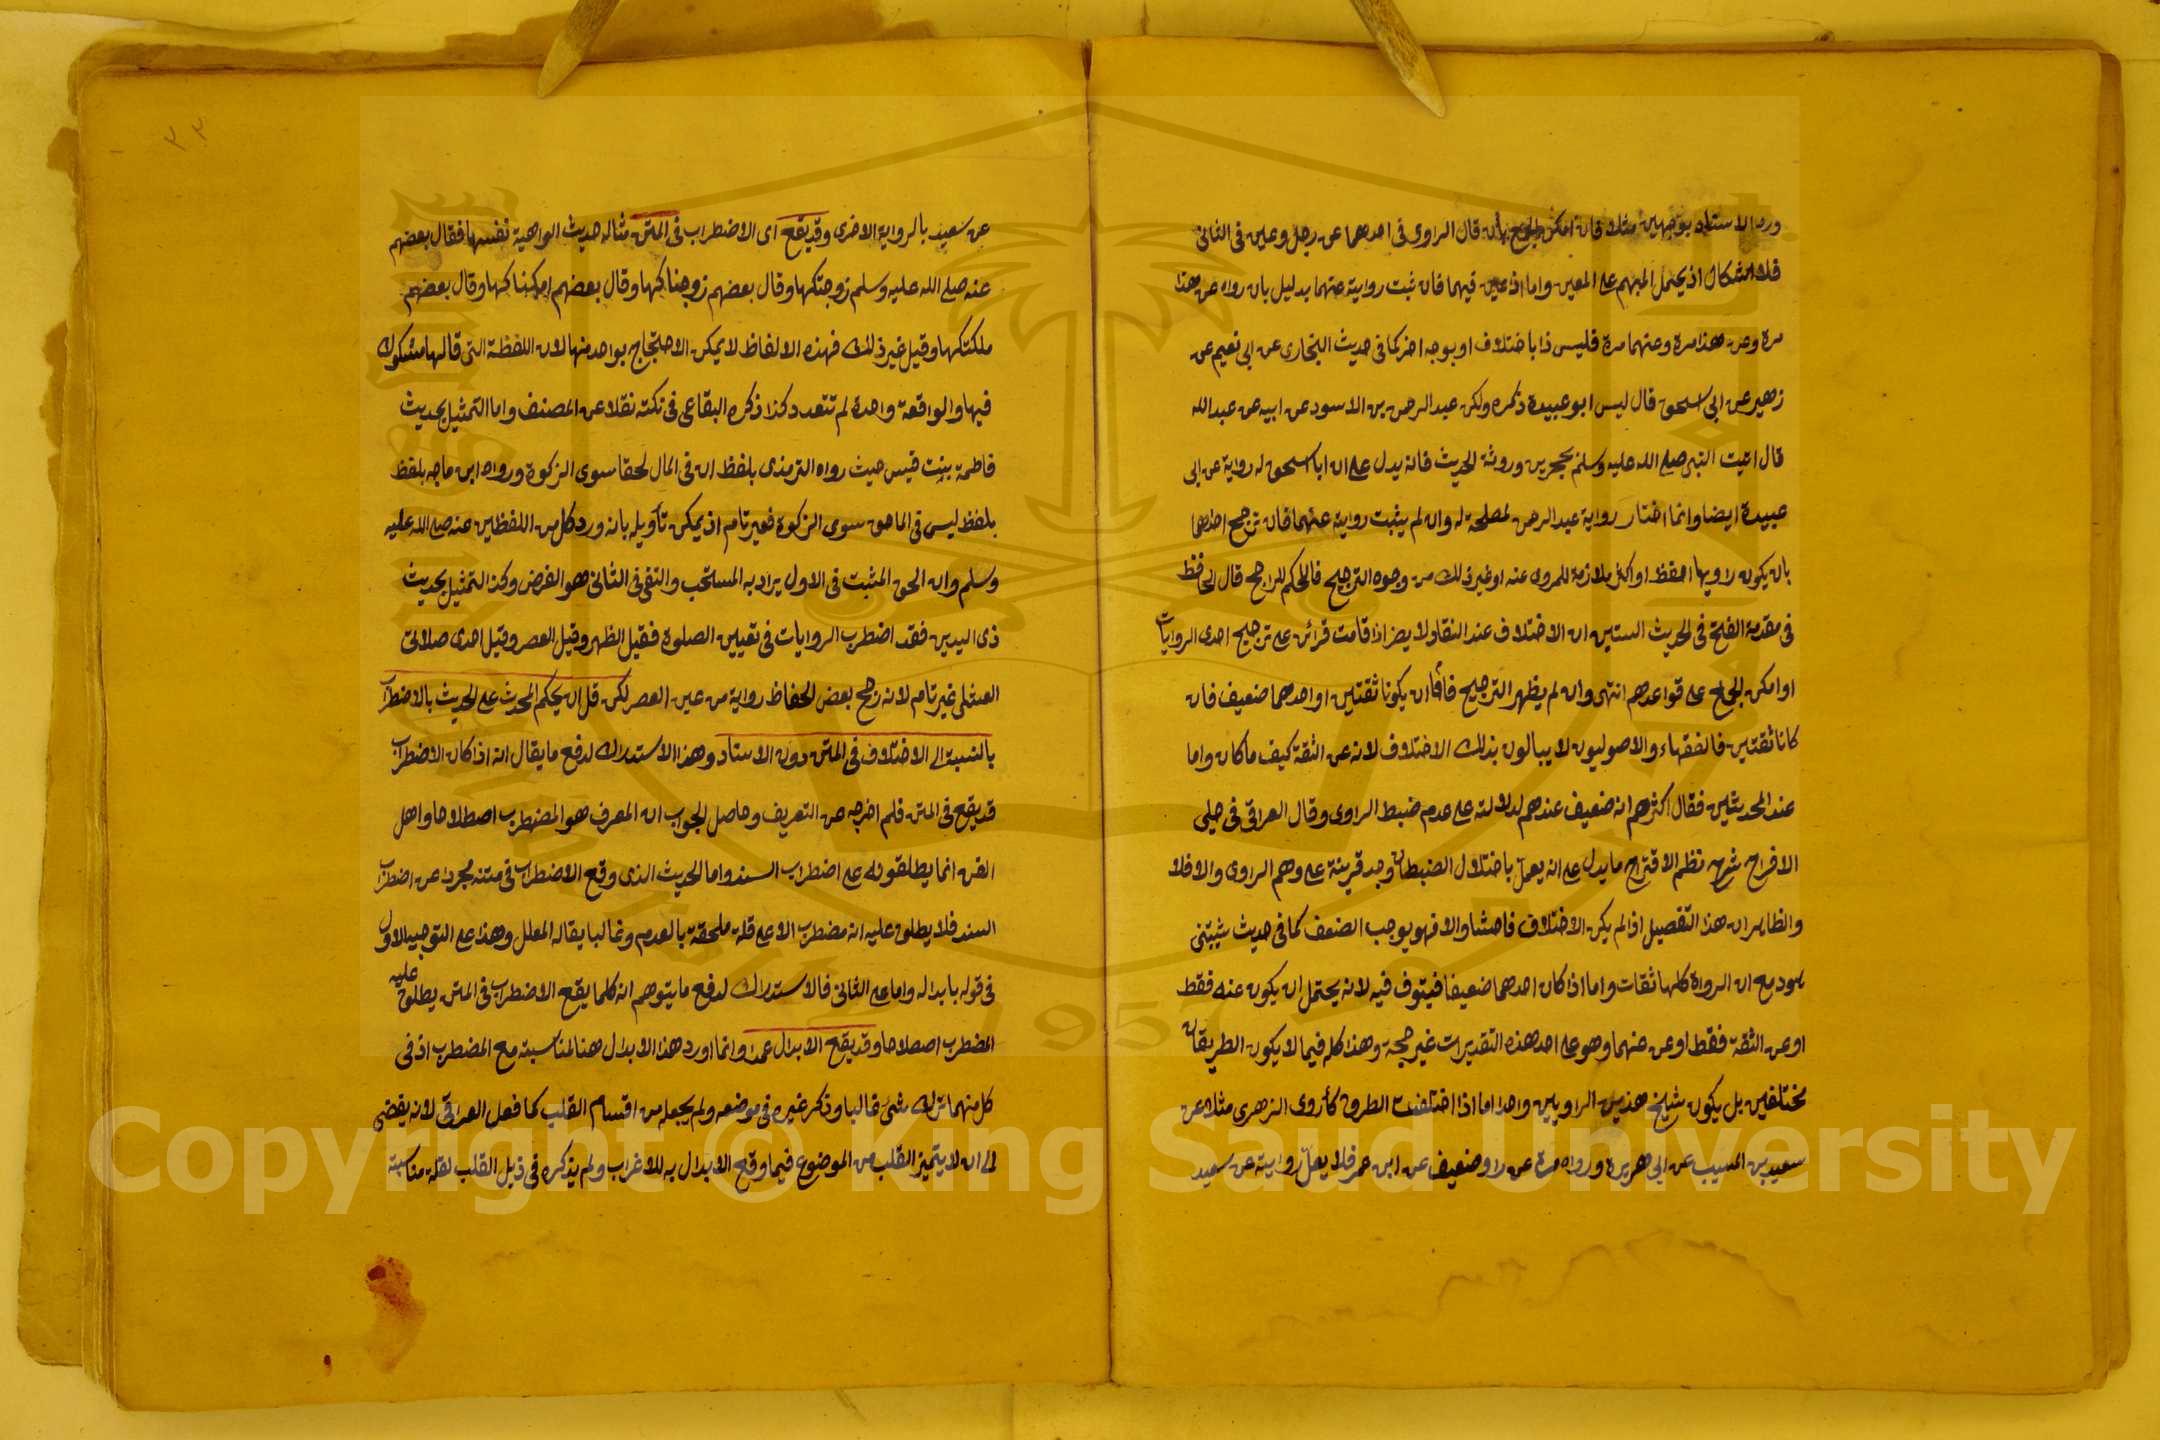 ورد الاسناد بوجهين مثلا فان امكن الجمع بأن قال الراوي في احدهما عن رجل وعين في الثاني
فلا اشكال اذ يحتمل المبهم على المعين واما اذا عين فيهما فان ثبت رواية عنهما بدليل بان رواه عن هذا
مرة وعن هذا مرة وعنهما مرة فليس ذا باختلاف او بوجه اخر كما في حديث البخاري عن ابي نعيم عن
زهير عن ابي اسحق قال ليس ابو عبيدة ذكره ولكن عبد الرحمن بن الاسود عن ابيه عن عبد الله
قال اتيت النبي صلى الله عليه وسلم بحجرين وروثة الحديث فانه يدل على ان ابا اسحق له رواية عن ابي
عبيدة ايضا وانما اختار رواية عبد الرحمن لمصلحة له وان لم يثبت رواية عنهما فان ترجح احدهما
بان يكون راويها احفظ او اكثر ملازمة للمروي عنه او غير ذلك من وجوه الترجيح فالحكم للراجح قال الحافظ
في مقدمة الفتح في الحديث الستين ان الاختلاف عند النقاد لا يضر اذا قامت قرائن على ترجيح احدى الروايات
او امكن الجمع على قواعدهم انتهى وان لم يظهر الترجيح فاما ان يكونا ثقتين او احدهما ضعيف فان
كانا ثقتين فالفقهاء والاصوليون لا يبالون بذلك الاختلاف لانه عن الثقة كيف ما كان واما
عند المحدثين فقال اكثرهم انه ضعيف عندهم لدلالته على عدم ضبط الراوي وقال العراقي في حلي
الافراح شرح نظم الاقتراح ما يدل على انه يعمل باختلال الضبط ان وجد قرينة على وهم الراوي والا فلا
والظاهر ان هذا التفصيل اذا لم يكن الاختلاف فاحشا والا فهو يوجب الضعف كما في حديث شيبتني
هود مع ان الرواة كلها ثقات واما اذا كان احدهما ضعيفا فيتوف فيه لانه يحتمل ان يكون عنه فقط
او عن الثقة فقط او عن عنهما وهو على احد هذه التقديرات غير حجة وهذا كله فيما لا يكون الطريقان
مختلفين بل يكون شيخ هذين الراويين واحدا اما اذا اختلفت الطرق كأروى الزهري مثلا عن
سعيد بن المسيب عن ابي هريرة ورواه مرة عن راو ضعيف عن ابن عمر فلا يعل رواية عن سعيد
٢٢
عن سعيد بالرواية الاخرى وقد يقع اى الاضطراب في المتن مثاله حديث الواهبة نفسها فقال بعضهم
عنه صلى الله عليه وسلم زوجتكها وقال بعضهم زوجناكها وقال بعضهم امكناكها وقال بعضهم
ملكتكها وقيل غير ذلك فهذه الالفاظ لا يمكن الاحتجاج بواحد منها لان اللفظة التي قالها مشكوك
فيها والواقعة واحدة لم تتعدد كذا ذكره البقاعي في نكته نقلا عن المصنف واما التمثيل بحديث
فاطمة بنت قيس حيث رواه الترمذي بلفظ ان في المال لحقا سوى الزكوة ورواه ابن ماجه بلفظ
بلفظ ليس في المال حق سوى الزكوة فغير تام اذ يمكن تأويله بانه ورد كل من اللفظين عنه صلى الله عليه
وسلم وان الحق المثبت في الاول يراد به المستحب والنفي في الثاني هو الفرض وكذا التمثيل بحديث
ذي اليدين فقد اضطرب الروايات في تعيين الصلوة فقيل الظهر وقيل العصر وقيل احدى صلاتي
العشي غير تام لانه رجح بعض الحفاظ رواية من عين العصر لكن قل ان يحكم المحدث على الحديث بالاضطراب
بالنسبة الى الاختلاف في المتن دون الاسناد وهذا الاستدراك لدفع ما يقال انه اذا كان الاضطراب
قد يقع في المتن فلم اخرجه عن التعريف وحاصل الجواب ان المعرف هو المضطرب اصطلاحا واهل
الفن انما يطلقونه على اضطراب السند واما الحديث الذي وقع الاضطراب في متنه مجردا عن اضطراب
السند فلا يطلق عليه انه مضطرب الا على قلة ملحقة بالعدم وغالبا يقال له المعلل وهذا على التوجيه الاول
في قوله بابداله واما على الثاني فالاستدراك لدفع ما يتوهم انه كلما يقع الاضطراب في المتن يطلق عليه
المضطرب اصطلاحا وقد يقع الابدال عمدا وانما اورد هذا الابدال هنا لمناسبته مع المضطرب اذ في
كل منهما ترك شئ غالبا وذكر غيره في موضعه ولم يجعله من اقسام القلب كما فعل العراقي لانه يفضي
الى ان لا يتميز القلب من الموضوع فيما وقع الابدال به للاغراب ولم يذكره في ذيل القلب لقلة مناسبة
Copyright © King Saud University
1957